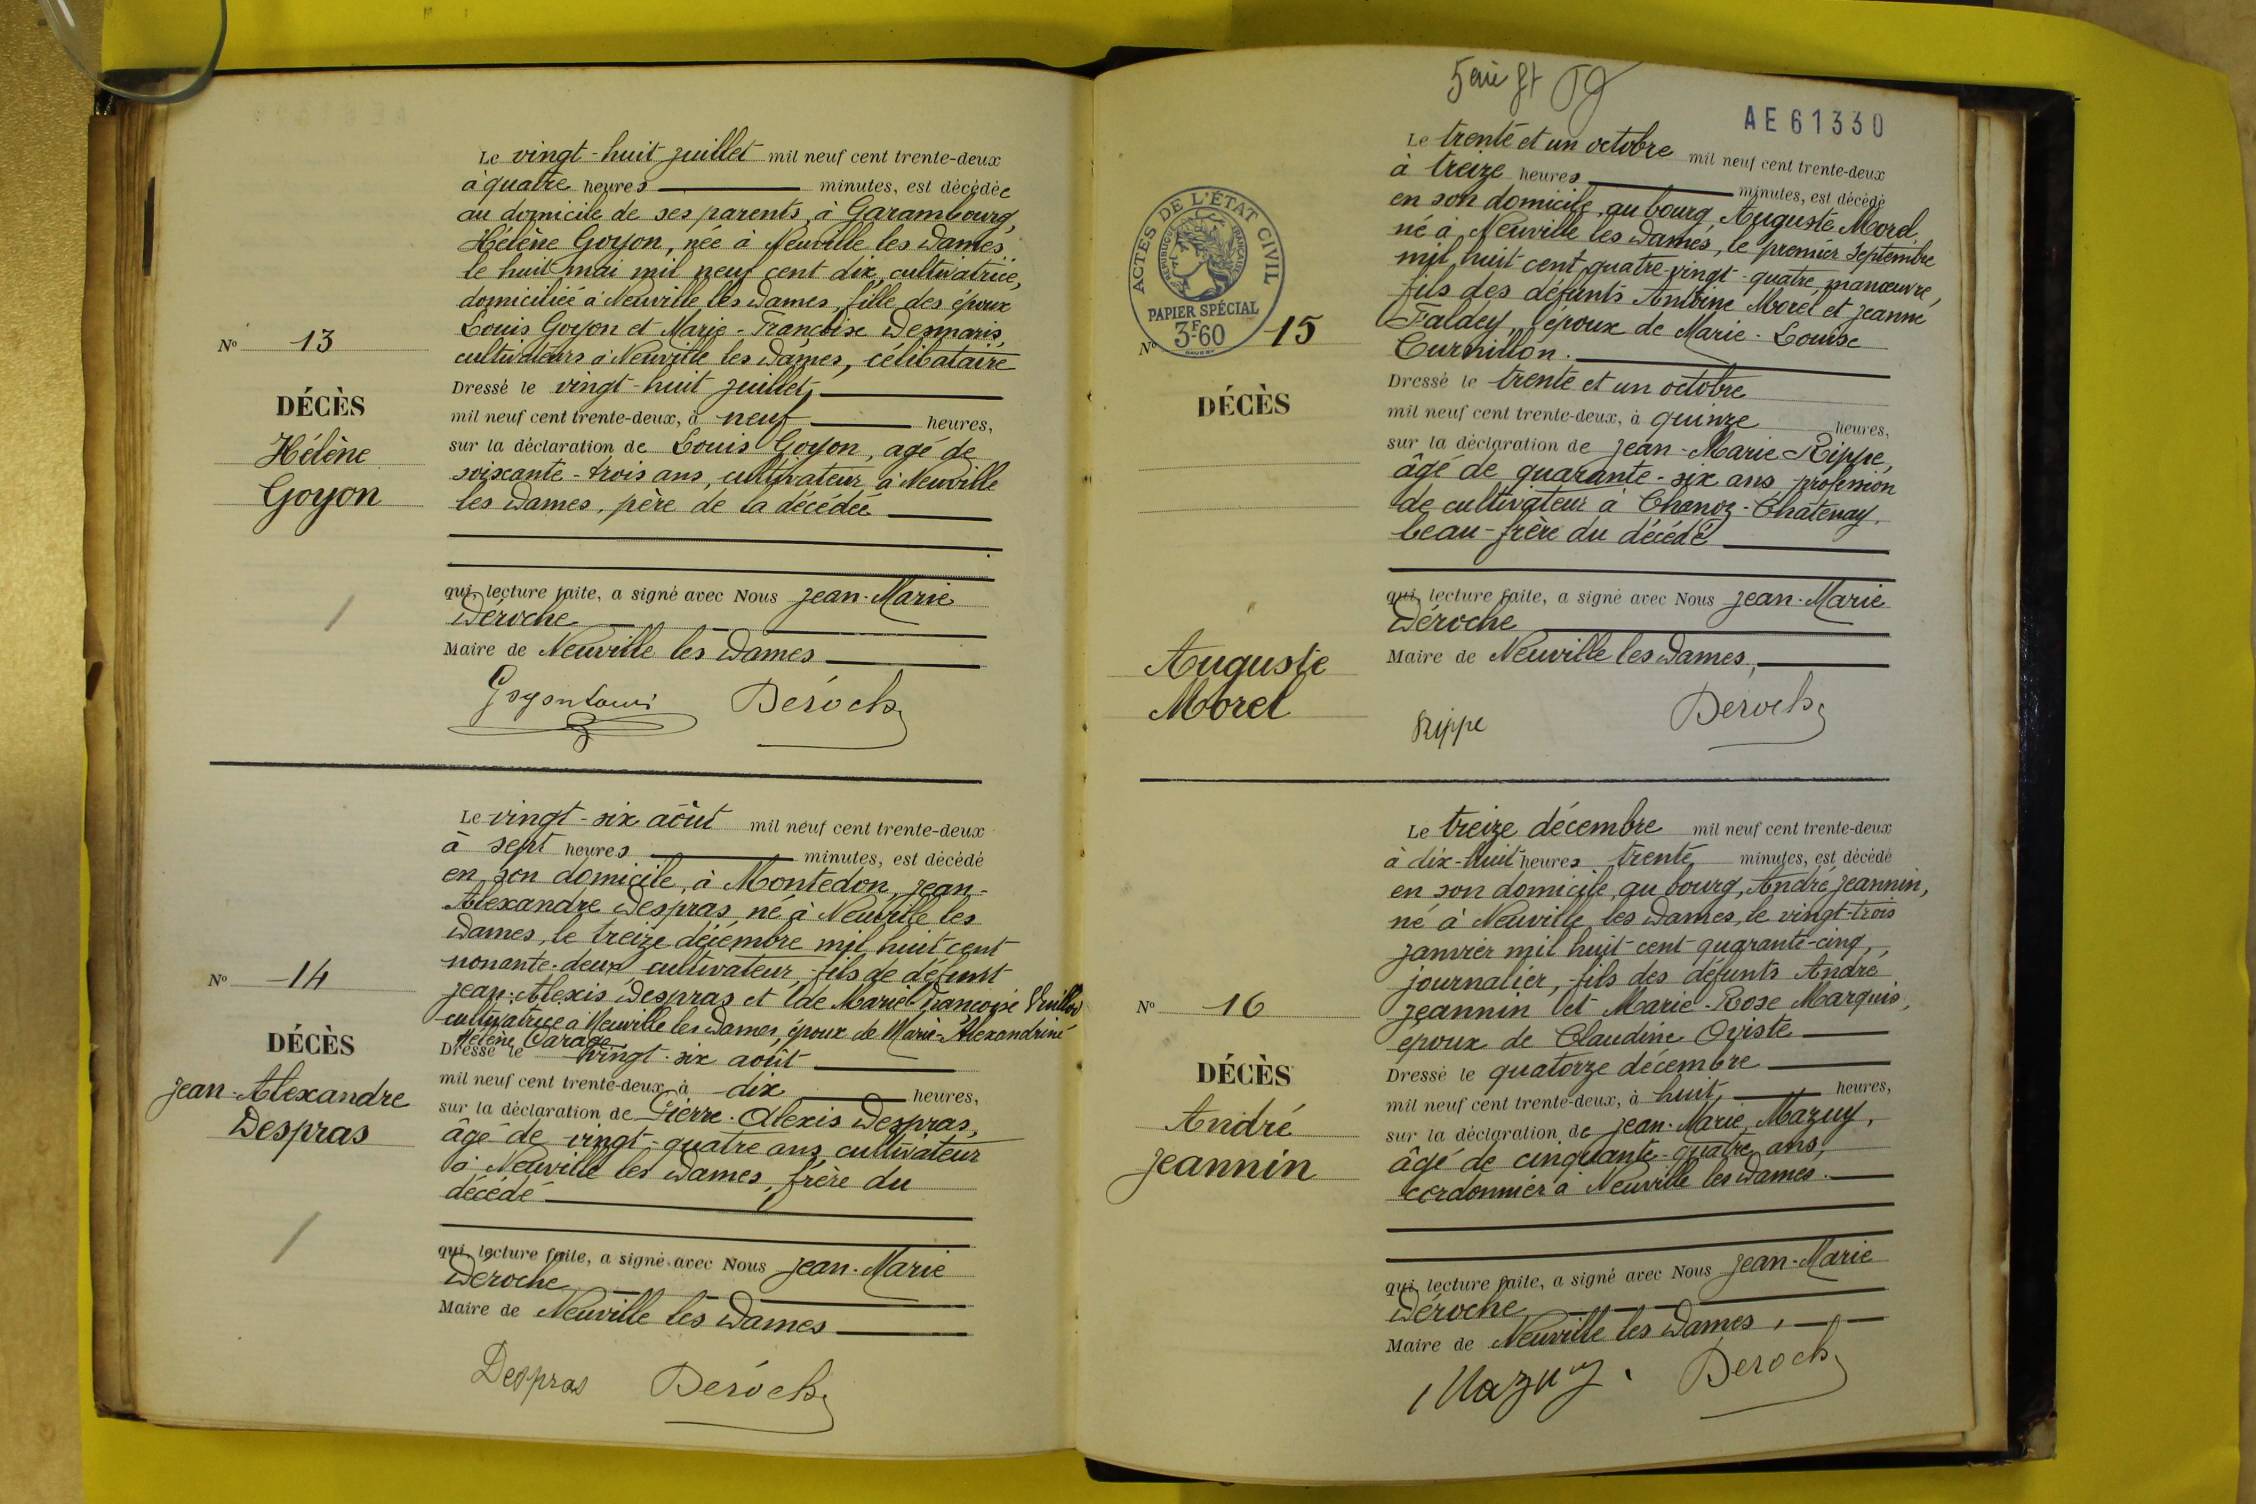 Le vingt-huit juillet mil neuf cent trente-deux
à quatre heures minutes, est décédée
au domicile de ses parents, à Garambourg,
Hélène Goyon, née à Neuville les Dames,
le huit mai mil neuf cent dix, cultivatrice,
domiciliée à Neuville les Dames, fille des époux
Louis Goyon et Marie-Françoise Desmaris,
cultivateurs à Neuville les Dames, célibataire
N° 13
DÉCÈS
Hélène
Goyon
Dressé le vingt-huit juillet,
mil neuf cent trente-deux, à neuf heures,
sur la déclaration de Louis Goyon, agé de
soixante-trois ans, cultivateur à Neuville
les Dames, père de la décédée
qui, lecture faite, a signé avec Nous Jean-Marie
Déroche
Maire de Neuville les Dames
Goyon Louis Déroche
Le vingt-six août mil neuf cent trente-deux
à sept heures minutes, est décédé
en son domicile, à Montedon, Jean-
Alexandre Despras, né à Neuville les
Dames, le treize décembre mil huit cent
nonante-deux cultivateur, fils de défunt
Jean-Alexis Despras et de Marie Françoise
cultivatrice à Neuville les Dames, époux de Marie-Alexandrine
Hélène
N° 14
DÉCÈS
Jean-Alexandre
Despras
Dressé le vingt-six août
mil neuf cent trente-deux, à dix heures,
sur la déclaration de Pierre-Alexis Despras,
âgé de vingt-quatre ans, cultivateur
à Neuville les Dames, frère du
décédé
qui, lecture faite, a signé avec Nous Jean-Marie
Déroche
Maire de Neuville les Dames
Despras Déroche
AE 61330
ACTES DE L'ÉTAT CIVIL
RÉPUBLIQUE FRANÇAISE
PAPIER SPÉCIAL
3F60
Le trente et un octobre mil neuf cent trente-deux
à treize heures minutes, est décédé
en son domicile, au bourg, Auguste Morel,
né à Neuville les Dames, le premier septembre
mil huit cent quatre-vingt-quatre, manœuvre,
fils des défunts Antoine Morel et Jeanne
Faldey, époux de Marie-Louise
Curnillon.
N° 15
DÉCÈS
Auguste
Morel
Dressé le trente et un octobre
mil neuf cent trente-deux, à quinze heures,
sur la déclaration de Jean-Marie Rippe,
âgé de quarante-six ans profession
de cultivateur à Chanoz-Châtenay,
beau-frère du décédé
qui, lecture faite, a signé avec Nous Jean-Marie
Déroche
Maire de Neuville les Dames,
Rippe Déroche
Le treize décembre mil neuf cent trente-deux
à dix-huit heures trente minutes, est décédé
en son domicile, au bourg, André Jeannin,
né à Neuville les Dames, le vingt-trois
janvier mil huit cent quarante-cinq,
journalier, fils des défunts André
Jeannin et Marie-Rose Marquis,
époux de Claudine Oviste
N° 16
DÉCÈS
André
Jeannin
Dressé le quatorze décembre
mil neuf cent trente-deux, à huit heures,
sur la déclaration de Jean-Marie Mazuy,
âgé de cinquante-quatre ans,
cordonnier à Neuville les Dames.
qui, lecture faite, a signé avec Nous Jean-Marie
Déroche
Maire de Neuville les Dames,
Mazuy. Déroche